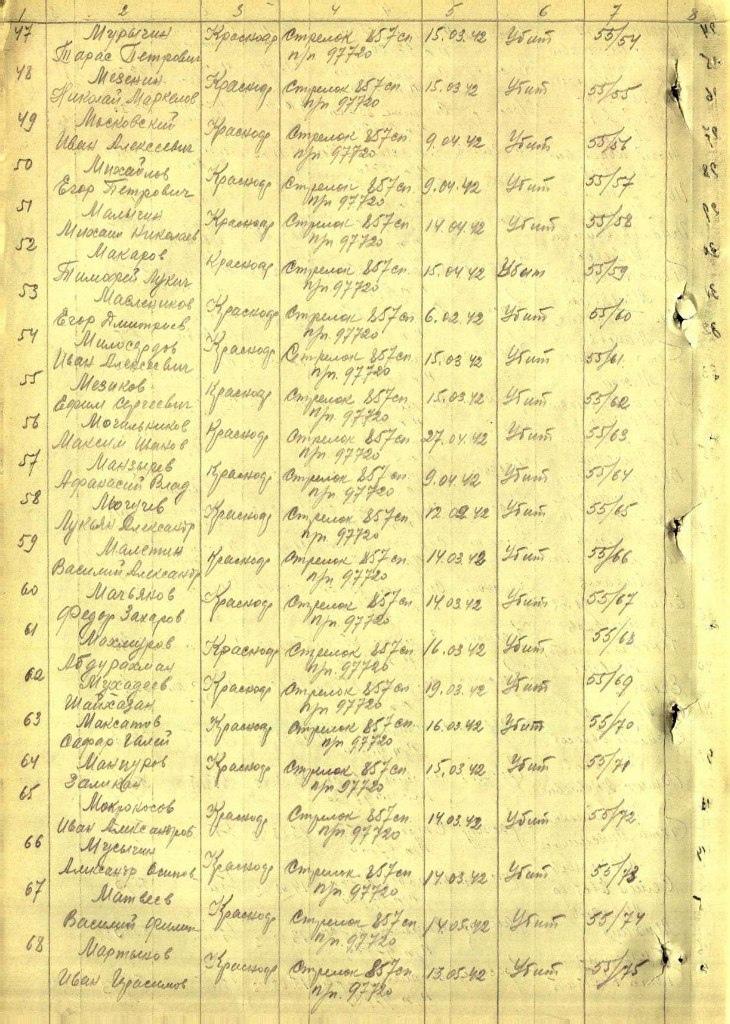 1 2 3 4 5 6 7 8
47 Мурычин Краснодр Стрелок 857 сп 15.03.42 Убит 55/54
Тарас Петрович п/п 97720
48 Мезенин Краснодр Стрелок 857 сп 15.03.42 Убит 55/55
Николай Маркелов п/п 97720
49 Мысковский Краснодр Стрелок 857 сп 9.04.42 Убит 55/56
Иван Алексеевич п/п 97720
50 Михайлов Краснодр Стрелок 857 сп 9.04.42 Убит 55/57
Егор Петрович п/п 97720
51 Малычин Краснодр Стрелок 857 сп 14.04.42 Убит 55/58
Михаил Николаев п/п 97720
52 Макаров Краснодр Стрелок 857 сп 15.04.42 Убит 55/59
Тимофей Лукич п/п 97720
53 Масленников Краснодр Стрелок 857 сп 6.02.42 Убит 55/60
Егор Дмитриев п/п 97720
54 Милосердов Краснодр Стрелок 857 сп 15.03.42 Убит 55/61
Иван Алексеевич п/п 97720
55 Мезиков Краснодр Стрелок 857 сп 15.03.42 Убит 55/62
Ефим Сергеевич п/п 97720
56 Мочальников Краснодр Стрелок 857 сп 27.04.42 Убит 55/63
Максим п/п 97720
57 Манзырев Краснодр Стрелок 857 сп 9.04.42 Убит 55/64
Афанасий Влад п/п 97720
58 Краснодр Стрелок 857 сп 12.02.42 Убит 55/65
Лукьян Александр п/п 97720
59 Малетин Краснодр Стрелок 857 сп 14.03.42 Убит 55/66
Василий Александр п/п 97720
60 Мачьянов Краснодр Стрелок 857 сп 14.03.42 Убит 55/67
Федор Захаров п/п 97720
61 Махмуров Краснодр Стрелок 857 сп 16.03.42 Убит 55/68
Абдурахман п/п 97720
62 Мухадеев Краснодр Стрелок 857 сп 19.03.42 Убит 55/69
Шайхазан п/п 97720
63 Максатов Краснодр Стрелок 857 сп 16.03.42 Убит 55/70
Сафар Галей п/п 97720
64 Манпуров Краснодр Стрелок 857 сп 15.03.42 Убит 55/71
Заликан п/п 97720
65 Мокроносов Краснодр Стрелок 857 сп 14.03.42 Убит 55/72
Иван Александров п/п 97720
66 Мусычин Краснодр Стрелок 857 сп 14.03.42 Убит 55/73
Александр Осипов п/п 97720
67 Матвеев Краснодр Стрелок 857 сп 14.05.42 Убит 55/74
Василий Филип п/п 97720
68 Мартынов Краснодр Стрелок 857 сп 13.05.42 Убит 55/75
Иван Герасимов п/п 97720